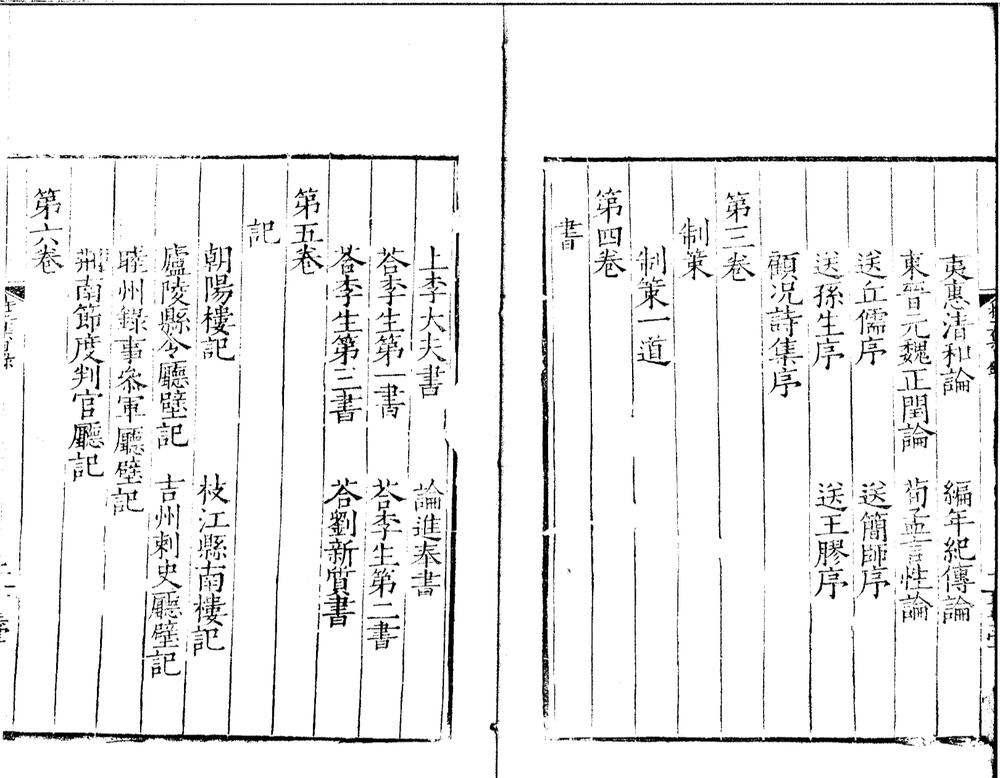 夷惠清和論　編年紀傳論
東晉元魏正閏論　荀孟言性論
送丘儒序　送簡師序
送孫生序　送王膠序
顧況詩集序
第三卷
制策
制策一道
第四卷
書
上李大夫書　論進奉書
荅李生第一書　荅李生第二書
荅李生第三書　荅劉新質書
第五卷
記
朝陽樓記　枝江縣南樓記
廬陵縣令廳壁記　吉州刺史廳壁記
睦州錄事參軍廳壁記
荆南節度判官廳記
第六卷